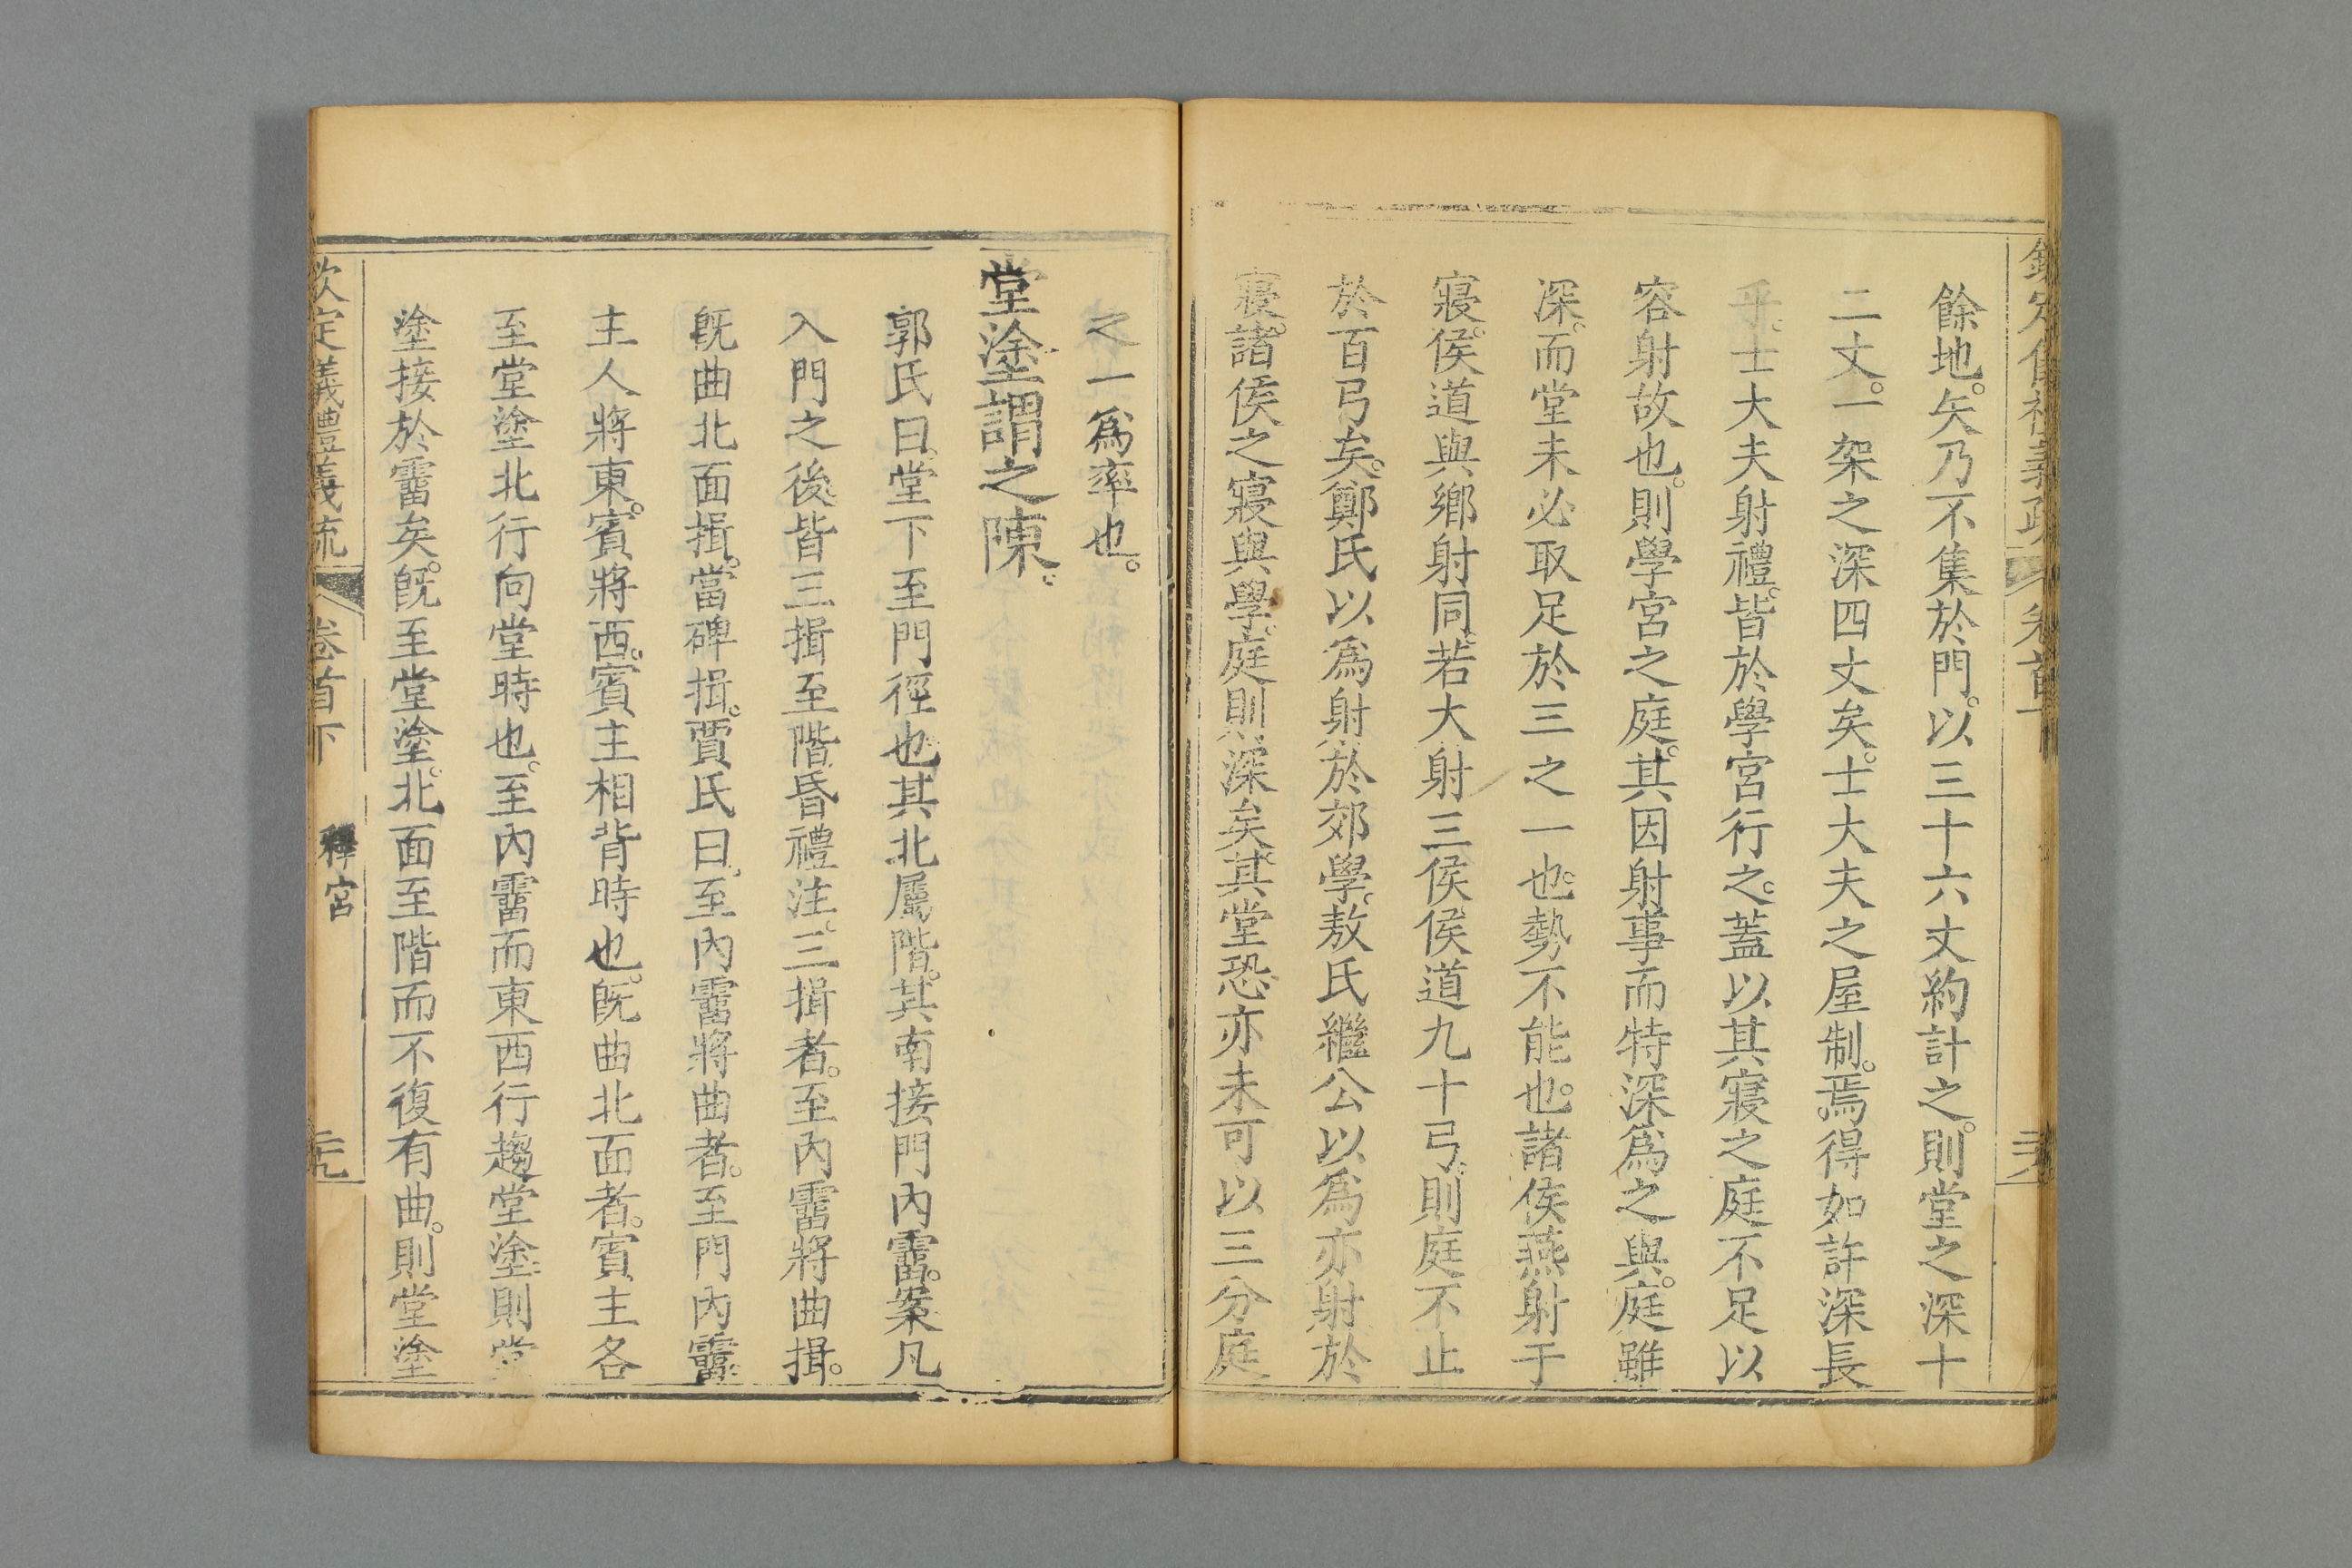 餘地。矢乃不集於門。以三十六丈約計之。則堂之深十
二丈。一架之深四丈矣。士大夫之屋制。焉得如許深長
乎。士大夫射禮。皆於學宮行之。蓋以其寢之庭不足以
容射故也。則學宮之庭。其因射事而特深爲之與。庭雖
深。而堂未必取足於三之一也。勢不能也。諸侯燕射于
寢。侯道與鄉射同。若大射三侯侯道九十弓。則庭不止
於百弓矣。鄭氏以爲射於郊學。敖氏繼公以爲亦射於
寢。諸侯之寢與學。庭則深矣。其堂恐亦未可以三分庭
之一爲率也。
堂塗謂之陳。
郭氏曰。堂下至門徑也。其北屬階。其南接門內霤。案凡
入門之後。皆三揖至階。昏禮注。三揖者。至內霤將曲揖。
旣曲北面揖。當碑揖。賈氏曰。至內霤將曲者。至門內霤。
主人將東。賓將西。賓主相背時也。旣曲北面者。賓主各
至堂塗北行向堂時也。至內霤而東西行趨堂塗。則堂
塗接於霤矣。旣至堂塗。北面至階而不復有曲。則堂塗
欽定義禮義疏 卷首下 釋宮 三九